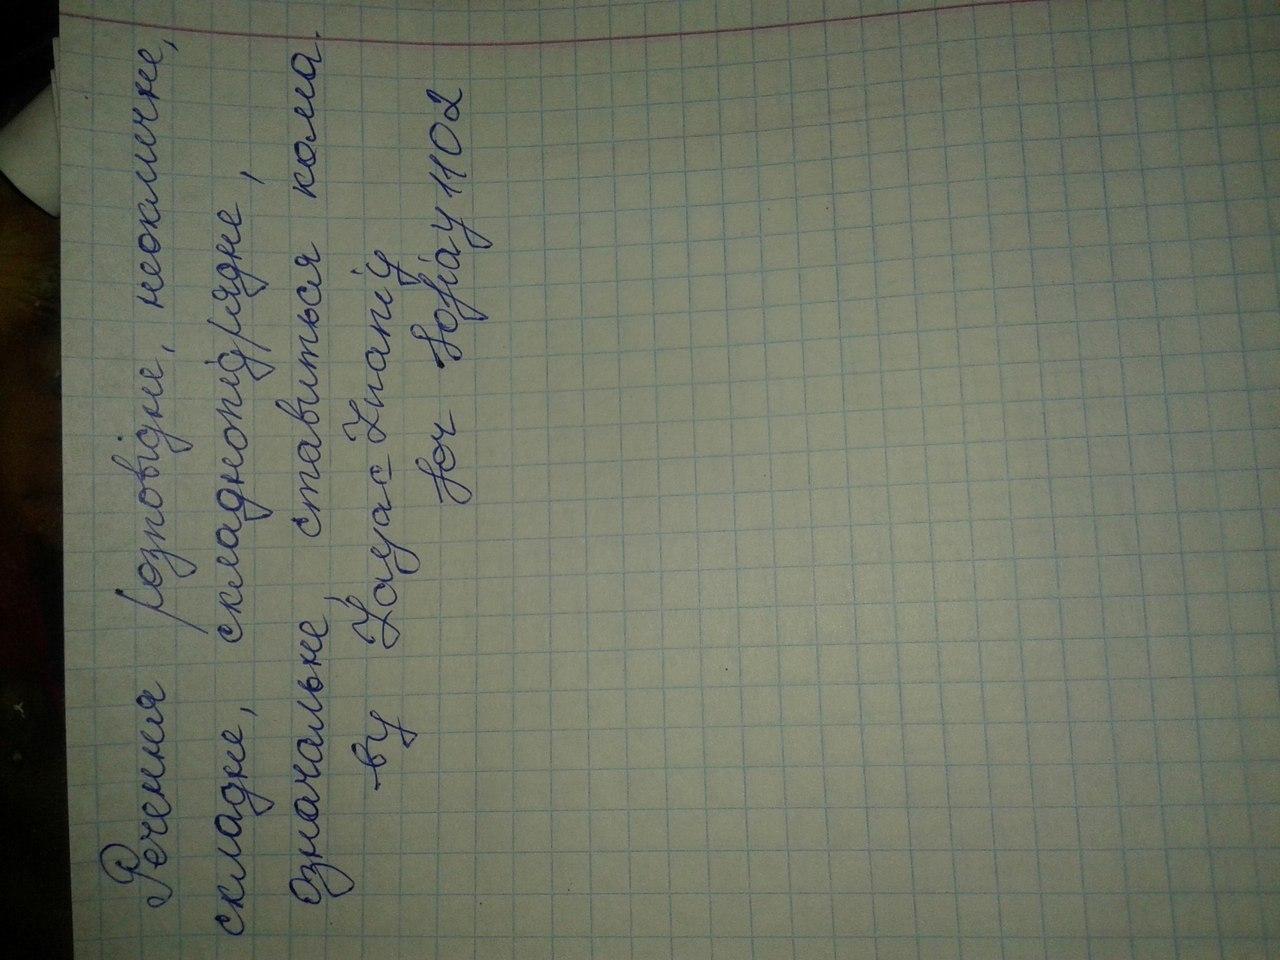 Речення розповідне, неокличне,
складне, складнопідрядне,
означальне, ставиться кома.
by ZayacZnaniy
for Sofiay1102